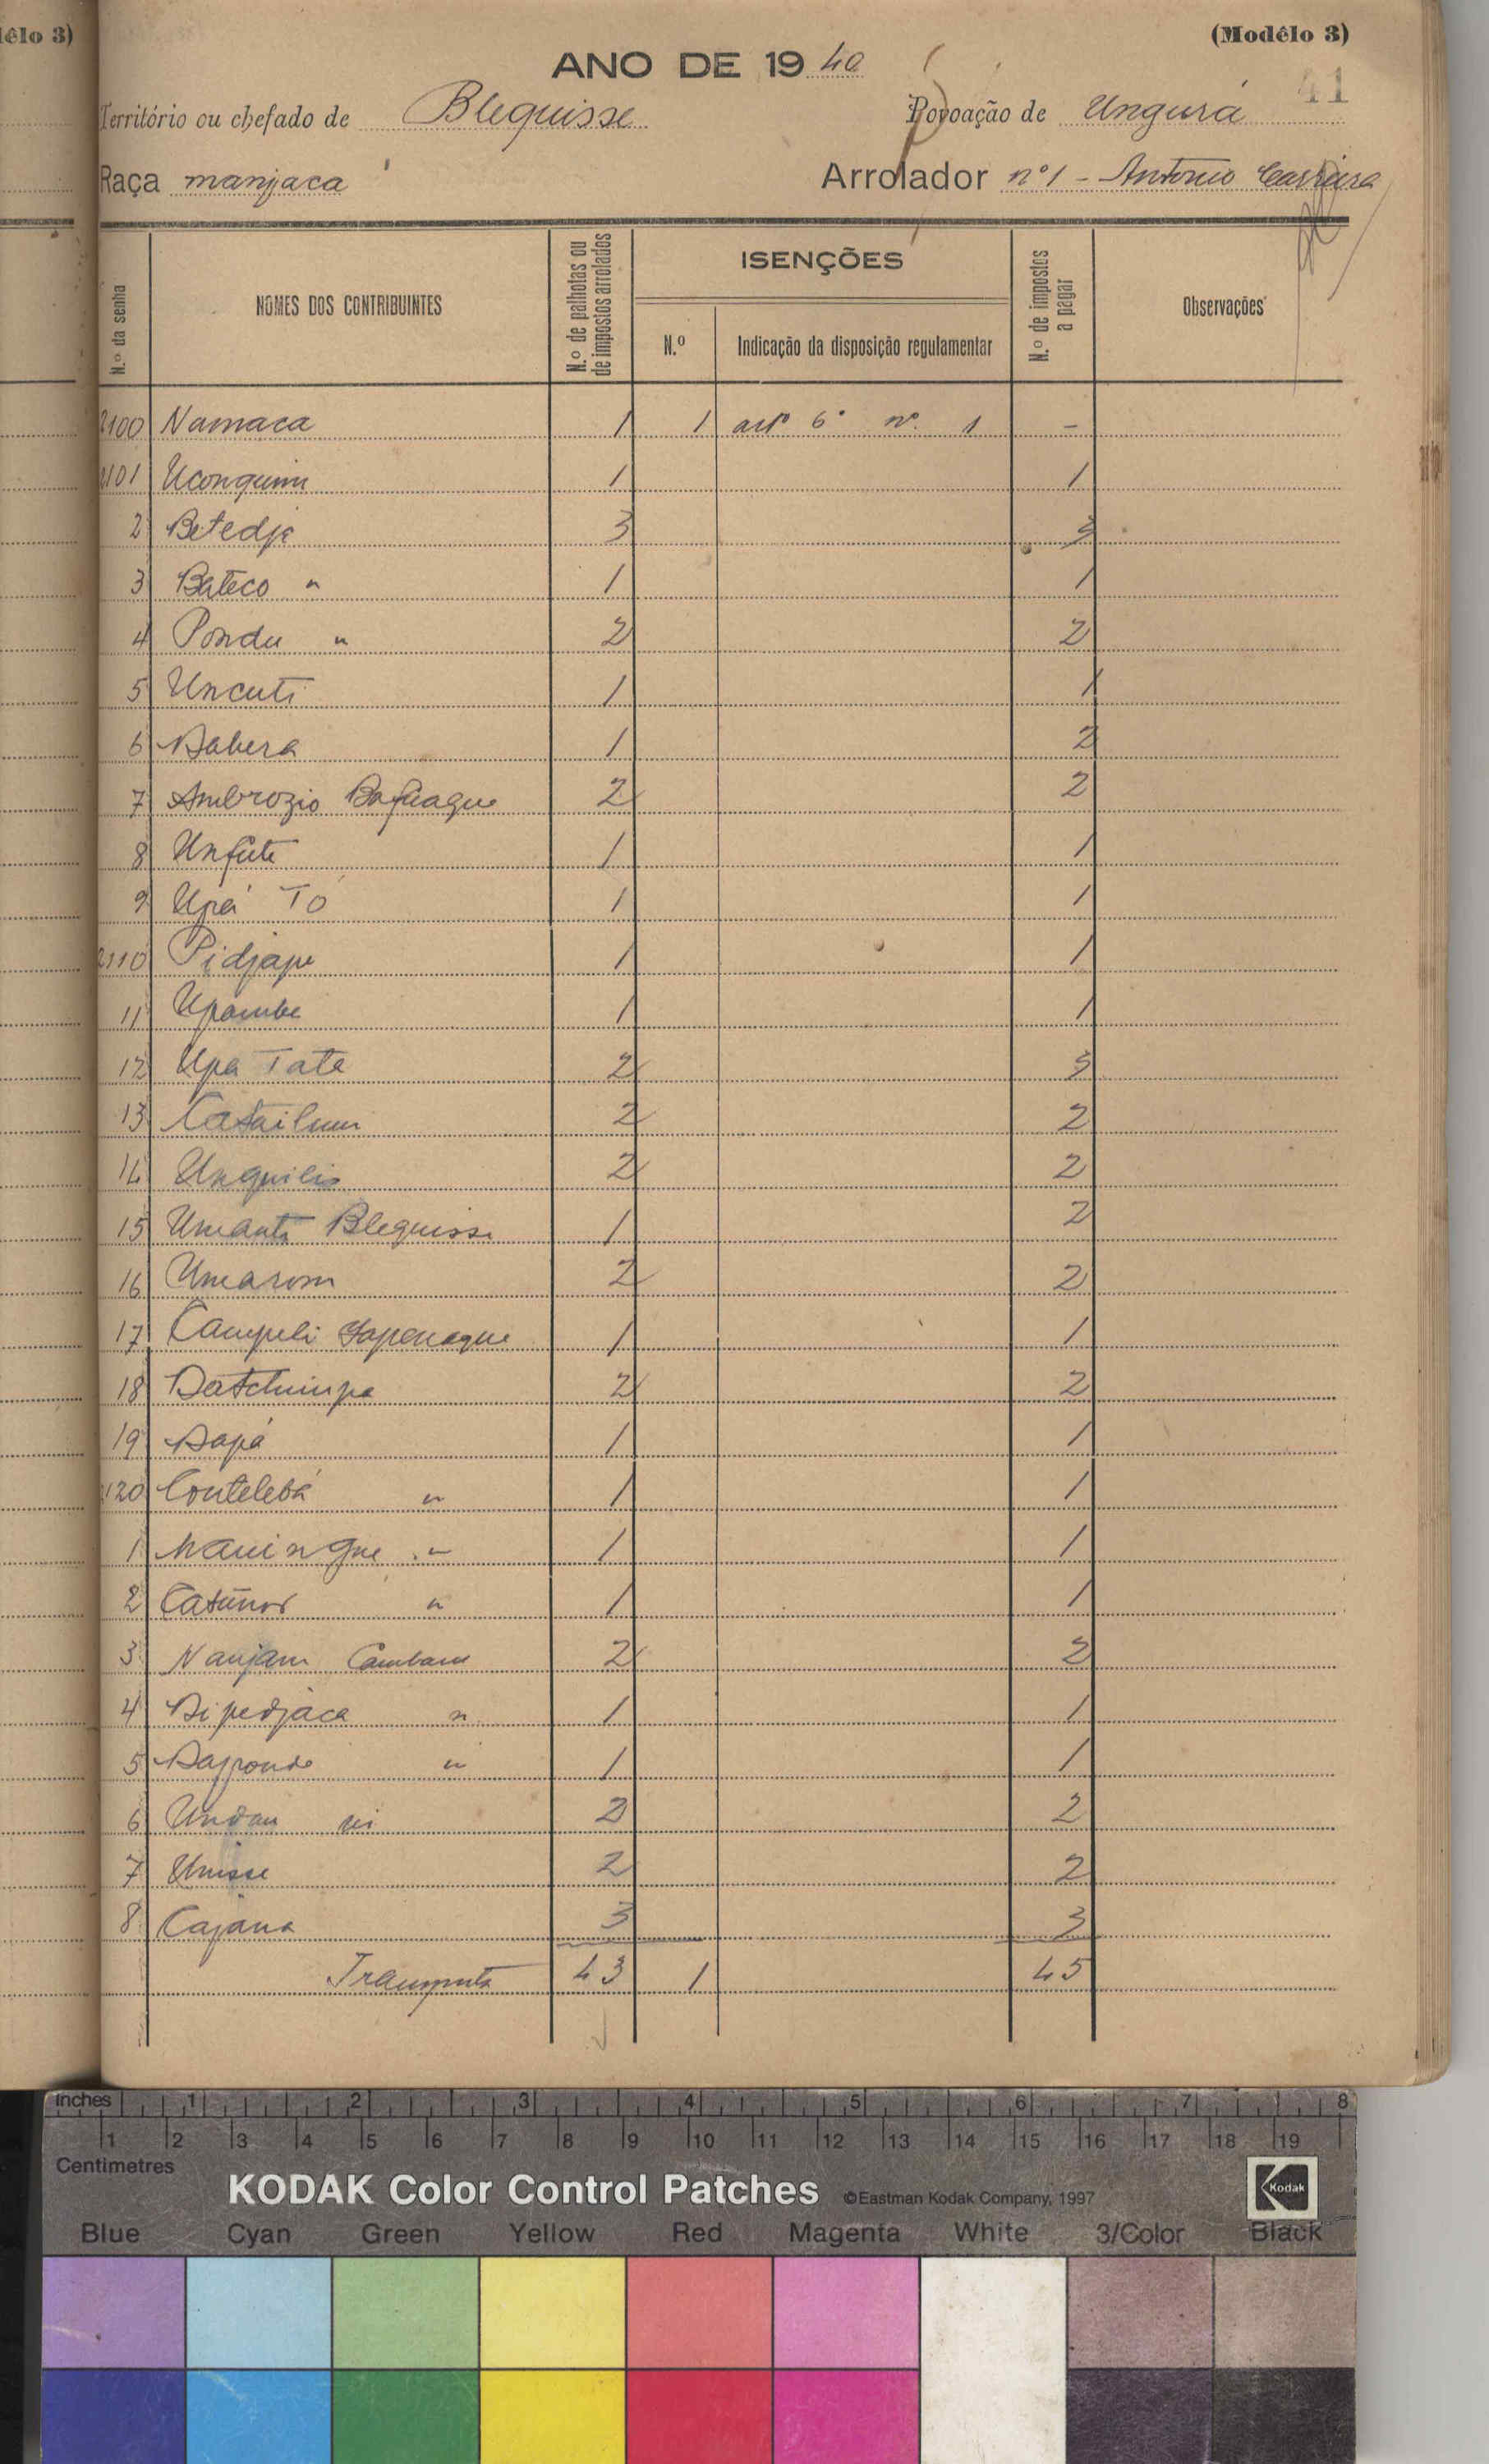 êlo 3)
(Modêlo 3)
ANO DE 1940
41
Território ou chefado de Blequisse Povoação de Ungurá
Raça manjaca Arrolador nº1 - Antonio Carreira
N.º da senha
NOMES DOS CONTRIBUINTES
N.º de palhotas ou de impostos arrolados
ISENÇÕES
N.º
Indicação da disposição regulamentar
N.º de impostos a pagar
Observações
2100 Namaca 1 1 artº 6º nº 1 -
2101 Uconquim 1 1
2 Betedja 3 3
3 Bateco " 1 1
4 Pondu " 2 2
5 Uncuti 1 1
6 Dabera 1 2
7 Ambrozio 2 2
8 Unfute 1 1
9 Upá Tó 1 1
2110 Pidjape 1 1
11 Upambe 1 1
12 Upa Tata 2 3
13 2 2
14 Unquilis 2 2
15 Umanta Blequisse 1 2
16 Umarom 2 2
17 Campeli 1 1
18 Datchimpa 2 2
19 Dapá 1 1
2120 Contelebá " 1 1
1 Maningue " 1 1
2 " 1 1
3 Nanjam Cambam 2 2
4 Dipedjaca " 1 1
5 " 1 1
6 Undan 2 2
7 Unisse 2 2
8 Cajana 3 3
43 1 45
inches 1 2 3 4 5 6 7 8
1 2 3 4 5 6 7 8 9 10 11 12 13 14 15 16 17 18 19
Centimetres
KODAK Color Control Patches ©Eastman Kodak Company, 1997 Kodak
Blue Cyan Green Yellow Red Magenta White 3/Color Black